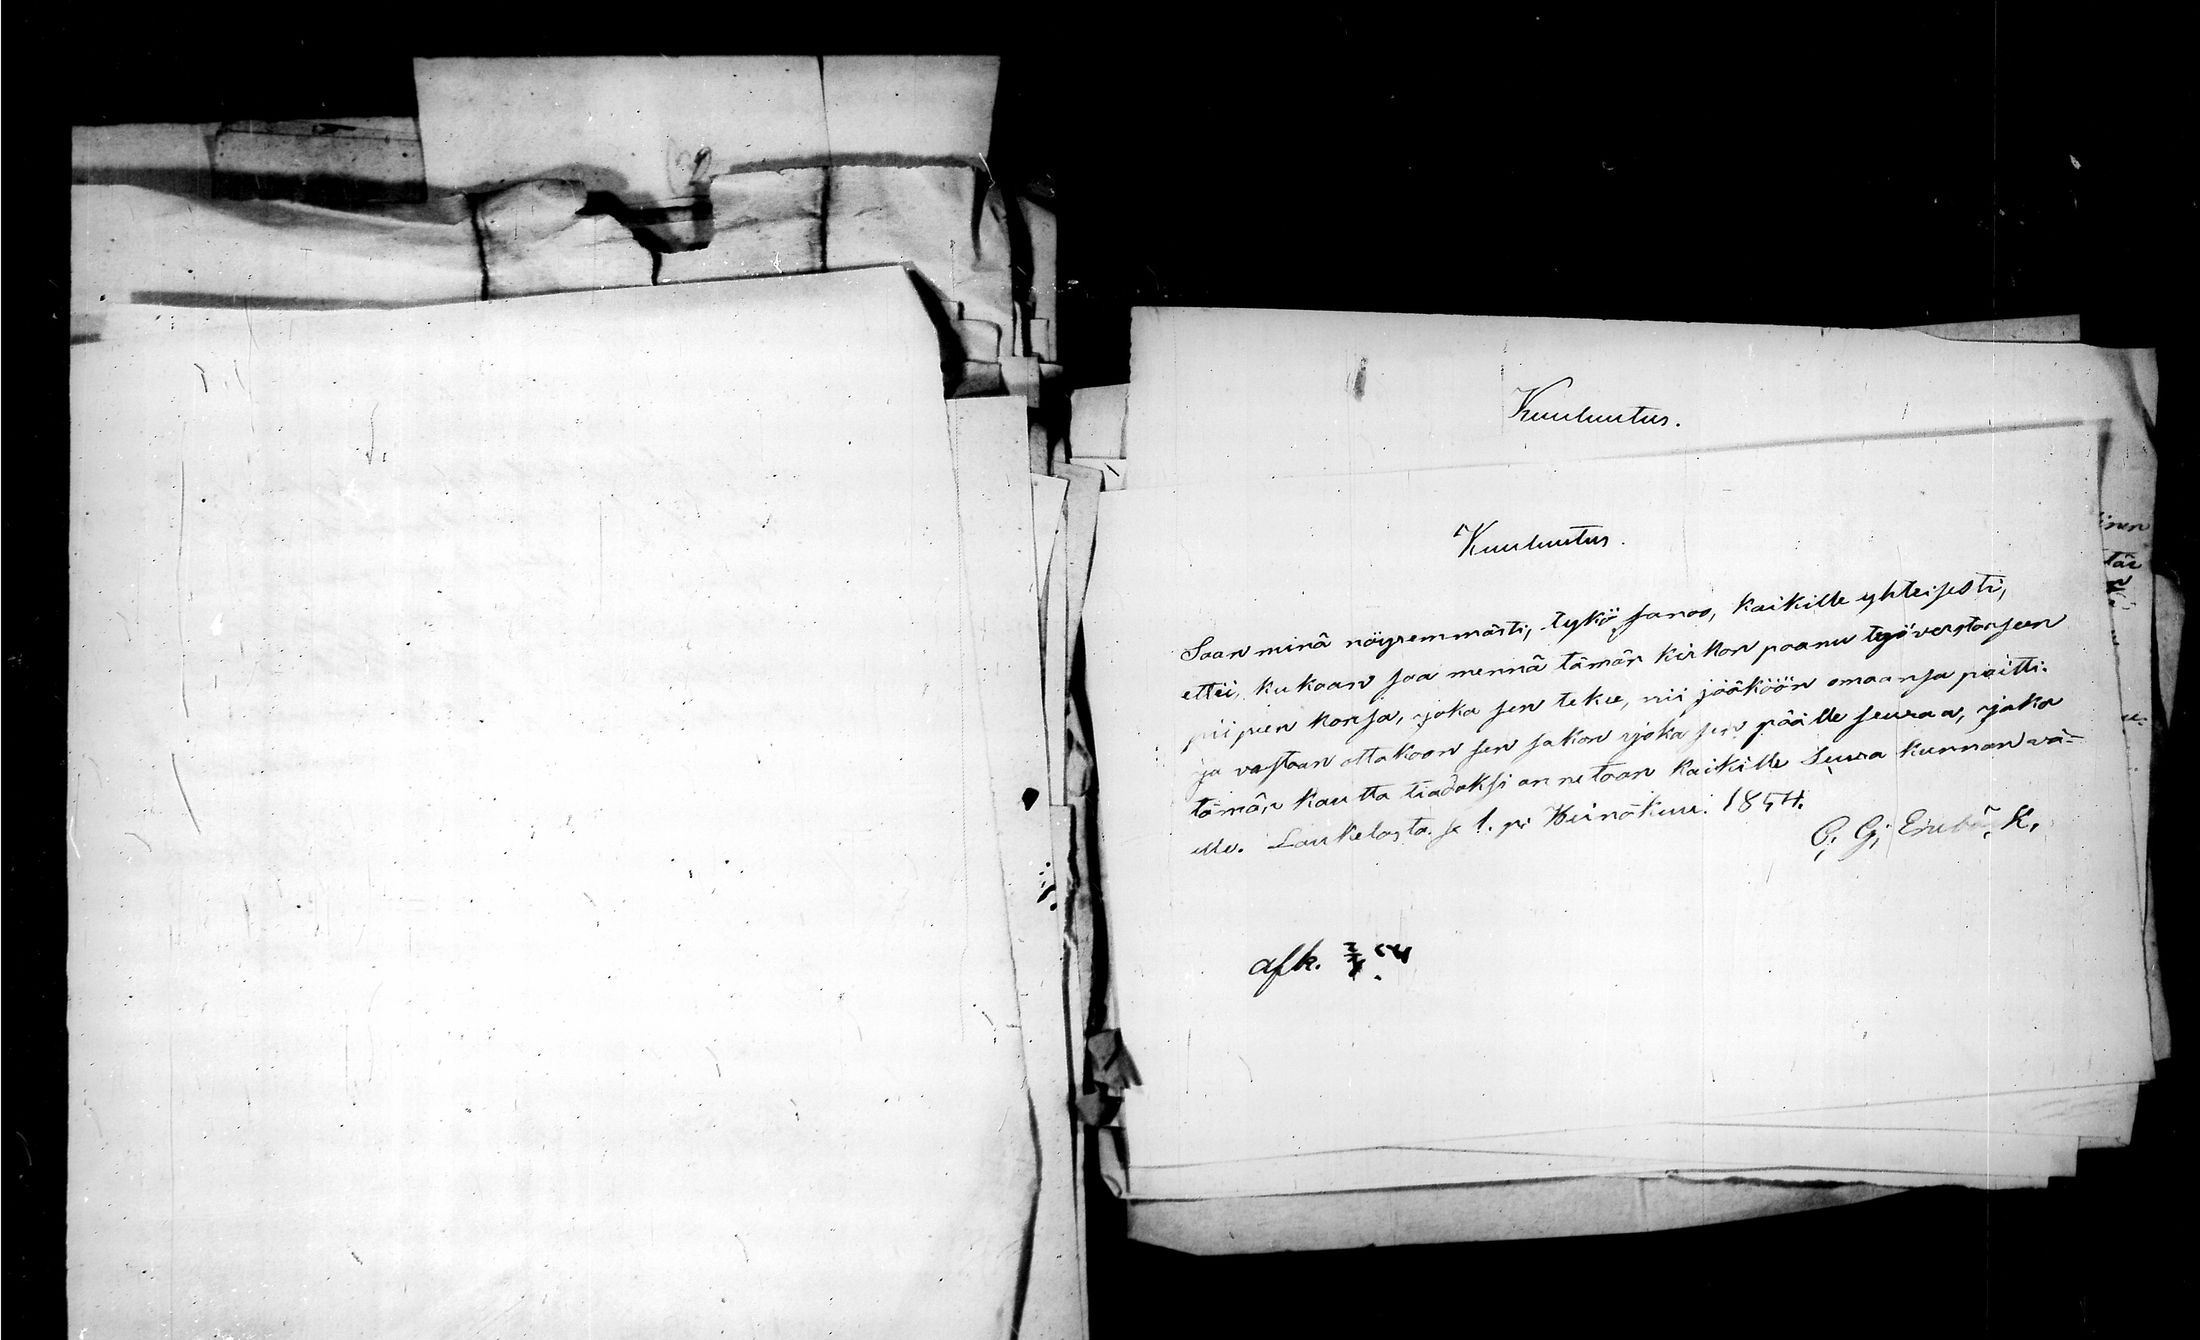 Kuuluutus.
Kuuluutus.
Saan minä nöyremmästi, tykö sanoo, kaikille yhteisesti,
ettei, kukaan saa mennä tämän kirkon paanu työverstaaseen
piipun kansa, joka sen tekee, nii jääköön omaansa paitti.
ja vastaan ottakoon sen sakon joka sen päälle seuraa, joka
tämän kautta tiadoksi annetaan kaikille Seura kunnan vä-
elle. Laukelasta se 1. pi Heinäkuu. 1854.
C. G. K.
afk. 2/7 54.
inen
tää